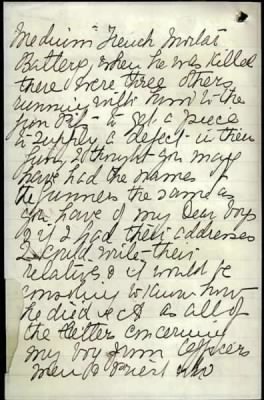 Medium French Mortar
Battery, when he was killed
there were three others
running with him to the
Gun Pit - to get a piece
to supply a defect in their
Gun, I thought you may
have had the names of
the Gunners the same as
you have of my Dear boys
& if I had their addresses
I could write their
relatives & it would be
consoling to know how
he died &ct as all of
the letters concerning
my boy from Officers
men & Priest who